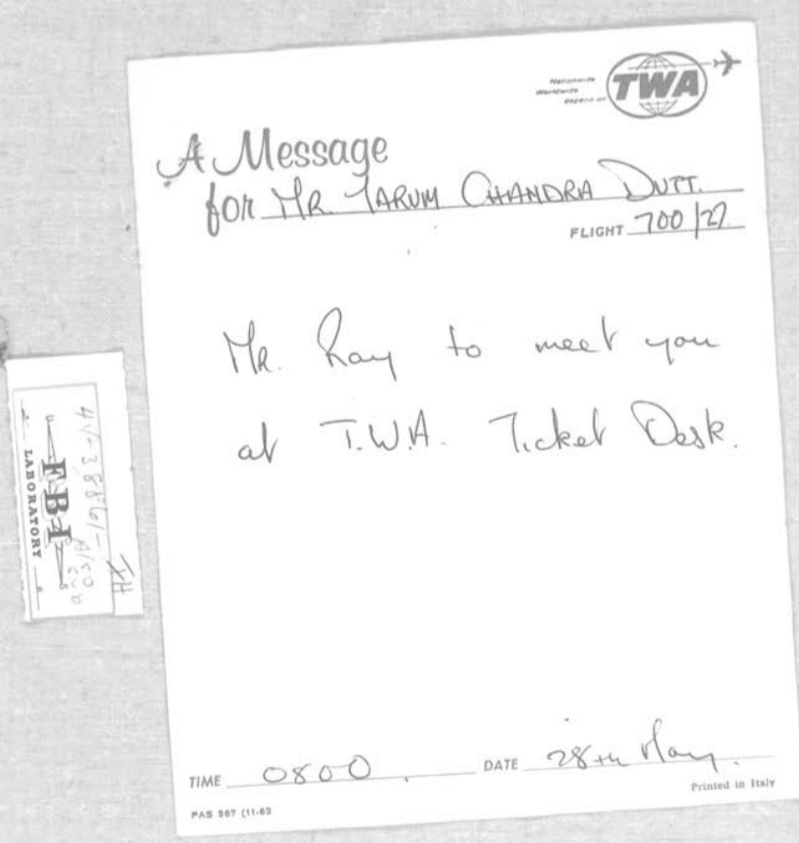 Nationwide
Worldwide
depend on
TWA
A Message
for MR. TARUM CHANDRA DUTT.
FLIGHT 700/27
MR. Ray to meet you
at T.W.A. Ticket Desk.
TIME 0800. DATE 28th May.
Printed in Italy
PAS 967 (11-62
FBI
LABORATORY